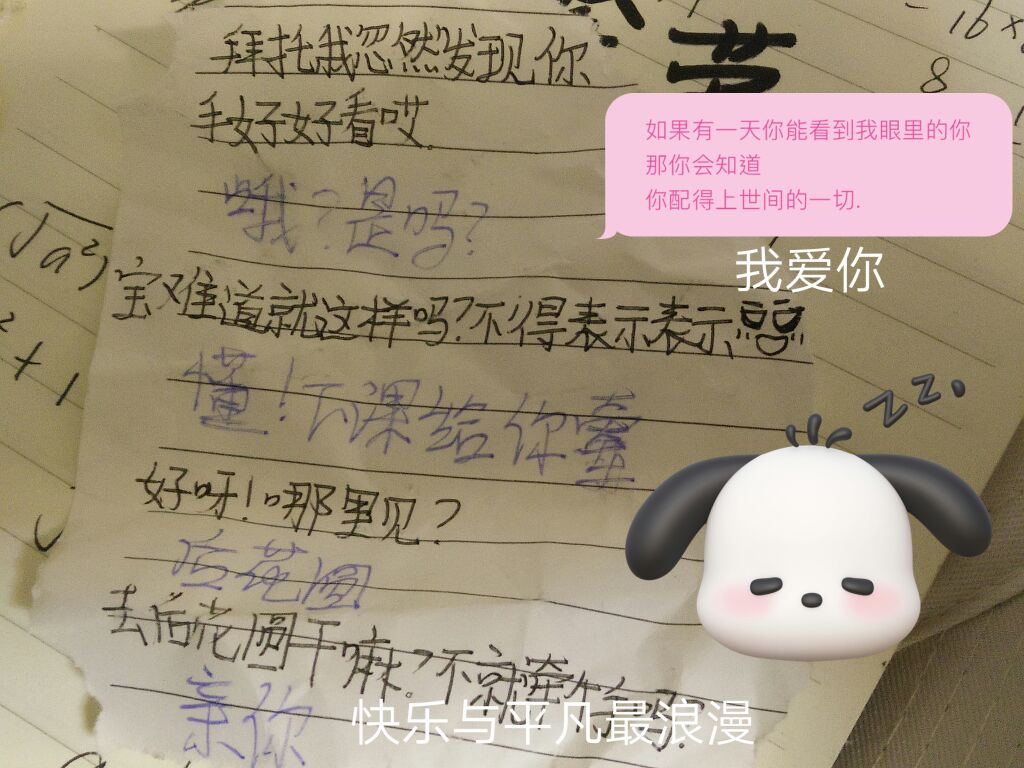 拜托我忽然发现你
手好好看哎.
哦?是吗?
宝难道就这样吗?不得表示表示
懂!下课给你牵
好呀!哪里见?
后花园
去后花园干嘛?不就牵个手吗?
亲你
如果有一天你能看到我眼里的你
那你会知道
你配得上世间的一切.
我爱你
zZz.
快乐与平凡最浪漫
16×
8